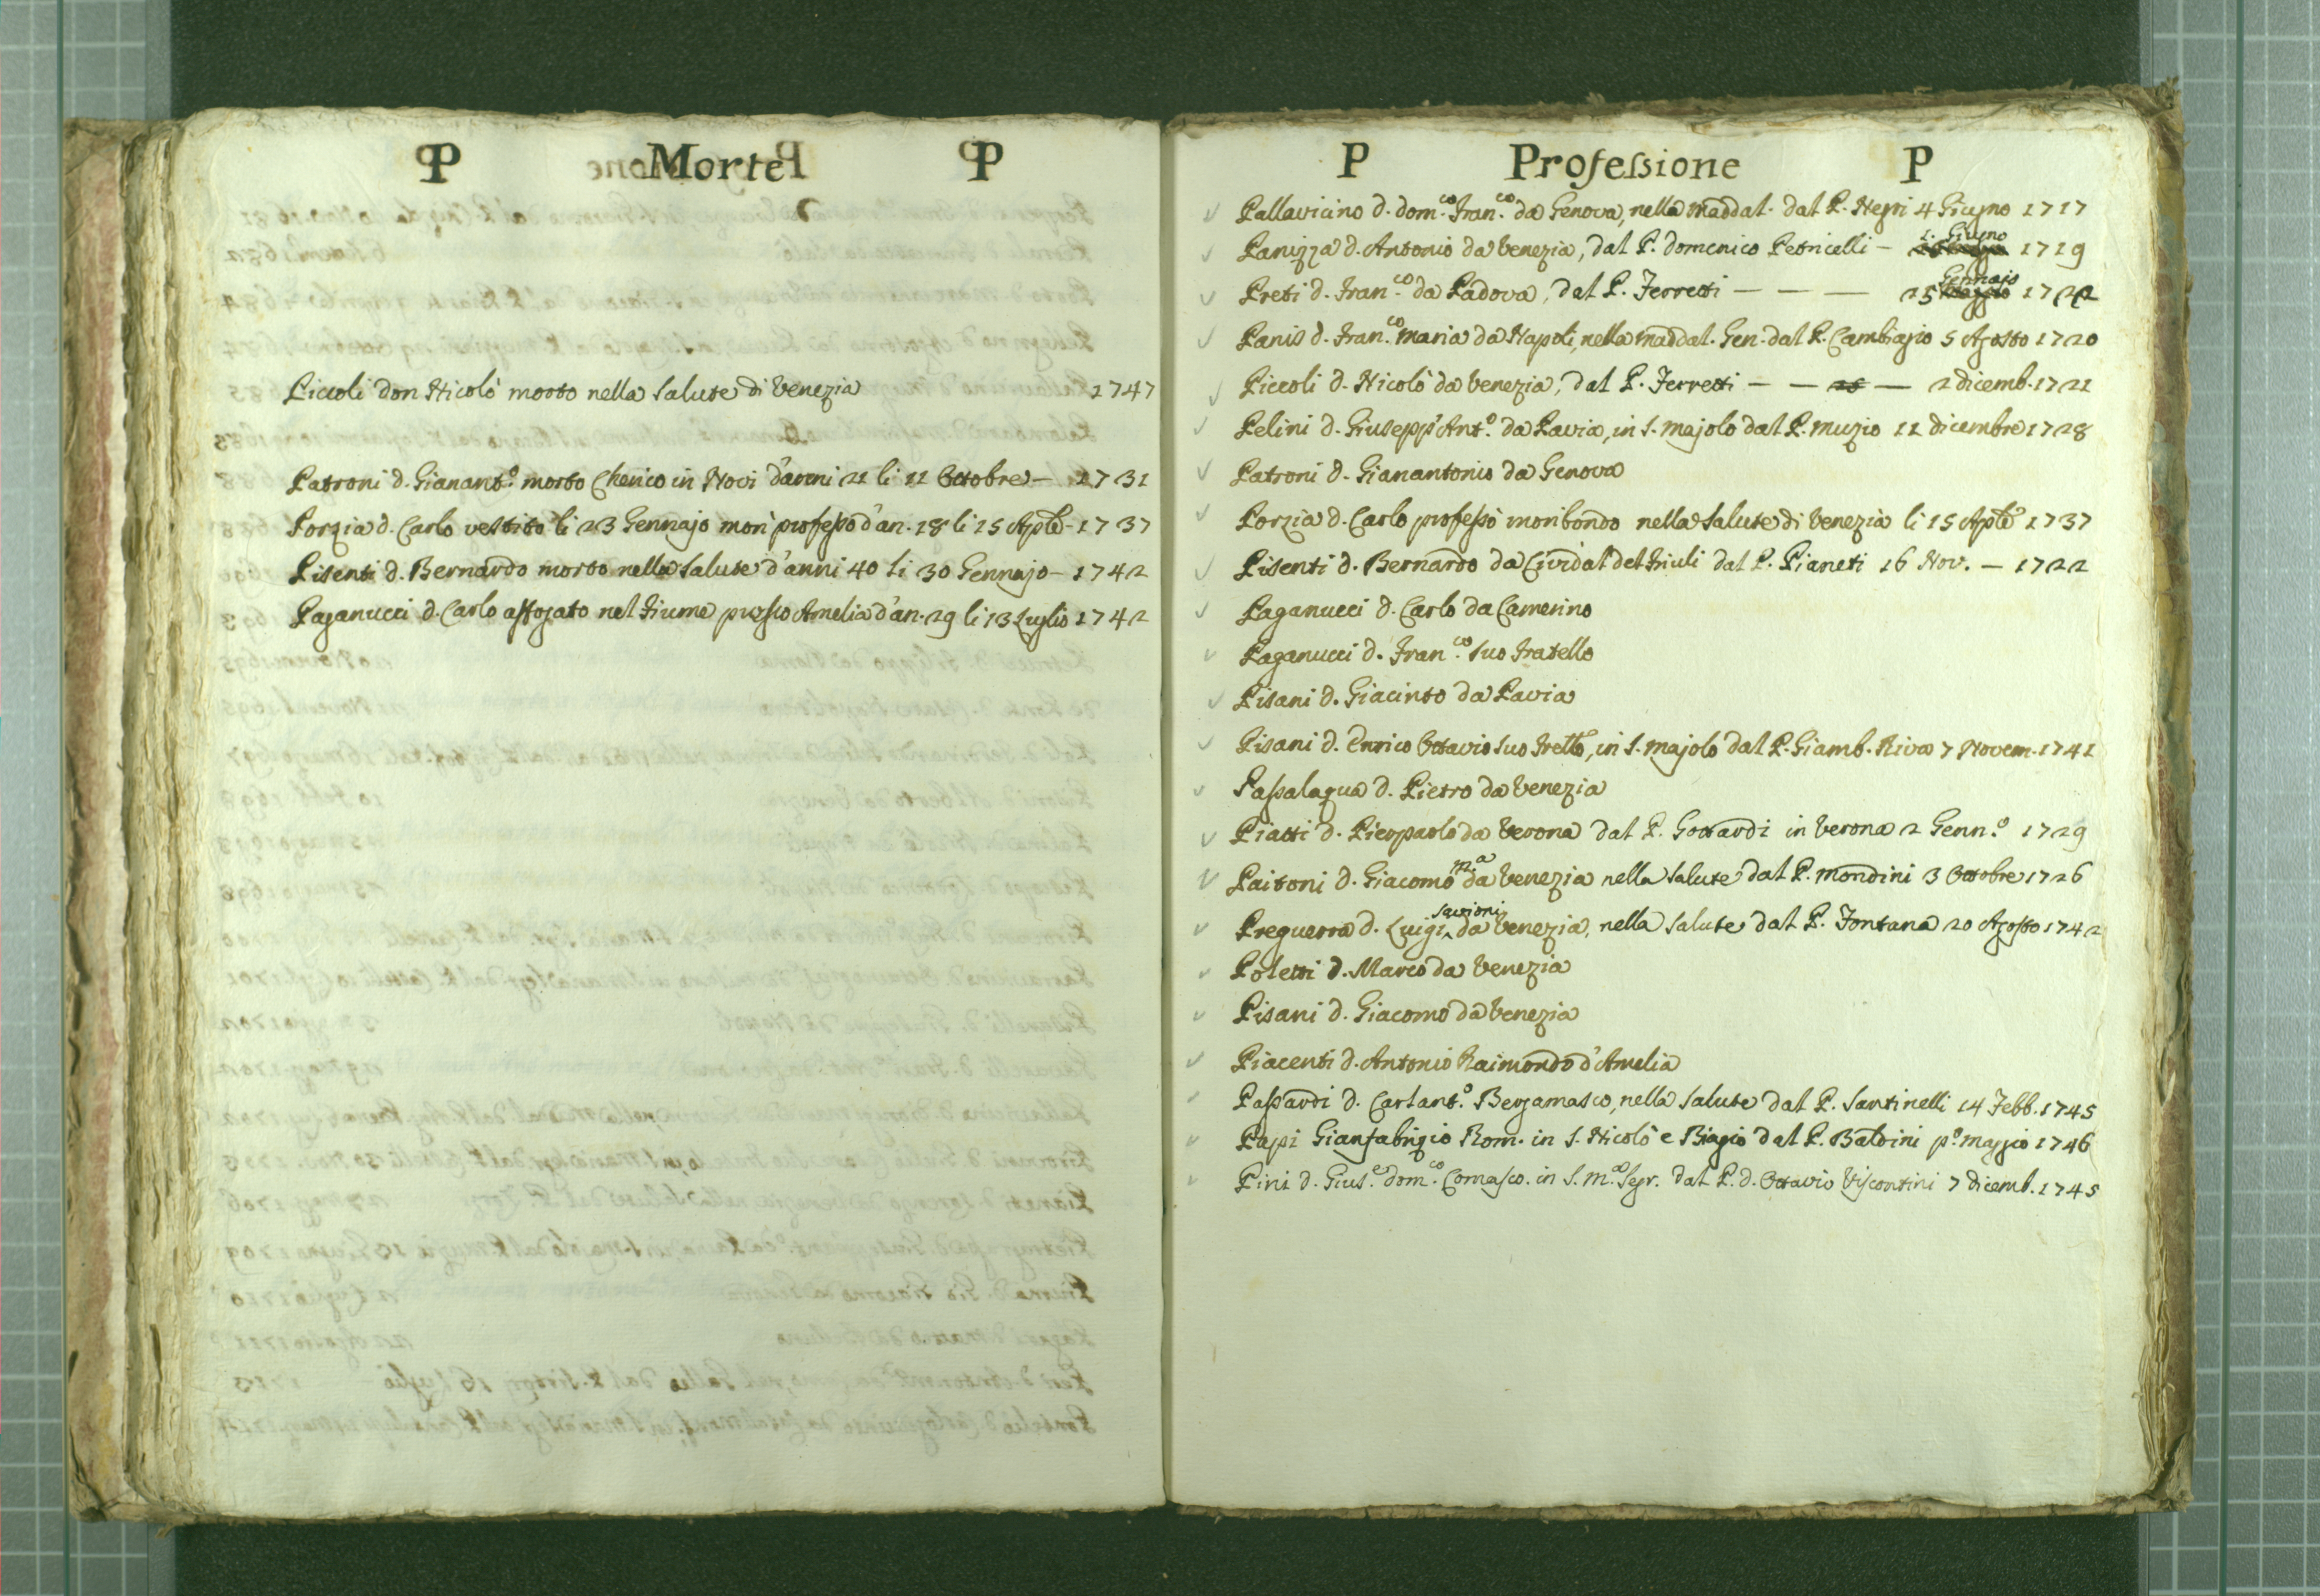 P Morte P
Piccoli don Nicolò morto nella Salute di Venezia 1747
Patroni d. Gianant.o morto Cherico in Novi d'anni 21 li 11 Ottobre — 1731
Porzia d. Carlo vestito li 23 Gennajo morì professo d'an. 18 li 15 Aple — 1737
Pisenti d. Bernardo morto nella Salute d'anni 40 li 30 Gennajo — 1742
Paganucci d. Carlo affogato nel fiume presso Amelia d'an. 29 li 13 Luglio 1742
P Professione P
Pallavicino d. Dom.co Fran.co da Genova, nella Maddal. dal P. Negri 4 Giugno 1717
Panizza d. Antonio da Venezia, dal P. Domenico Petricelli — 1. Giugno 1719
Preti d. Fran.co da Padova, dal P. Ferretti — — — 25 Gennajo 1722
Panis d. Fran.co Maria da Napoli, nella Maddal. Gen. dal P. Cambiagio 5 Agosto 1720
Piccoli d. Nicolò da Venezia, dal P. Ferretti — — — 2 dicemb. 1721
Pelini d. Giusepp'Ant.o da Pavia, in S. Majolo dal P. Muzio 11 dicembre 1728
Patroni d. Gianantonio da Genova
Porzia d. Carlo professò moribondo nella Salute di Venezia li 15 Aple 1737
Pisenti d. Bernardo da Cividal del Friuli dal P. Pianeti 16 Nov. — 1722
Paganucci d. Carlo da Camerino
Paganucci d. Fran.co suo fratello
Pisani d. Giacinto da Pavia
Pisani d. Enrico Ottavio suo frello, in S. Majolo dal P. Giamb. Riva 7 Novem. 1741
Passalaqua d. Pietro da Venezia
Piatti d. Pierpaolo da Verona dal P. Gottardi in Verona 2 Genn.o 1729
Paitoni d. Giacomo M.a da Venezia nella Salute dal P. Mondini 3 Ottobre 1726
Preguerra d. Luigi Savioni da Venezia, nella Salute dal P. Fontana 20 Agosto 1742
Poletti d. Marco da Venezia
Pisani d. Giacomo da Venezia
Piacenti d. Antonio Raimondo d'Amelia
Passardi d. Carlant.o Bergamasco, nella Salute dal P. Santinelli 14 Febb. 1745
Papi Gianfabrizio Rom. in S. Nicolò e Biagio dal P. Baldini p.o maggio 1746
Pini d. Gius.e Dom.co Comasco. in S. M.a Segr. dal P. d. Ottavio Visconti 7 dicemb. 1745